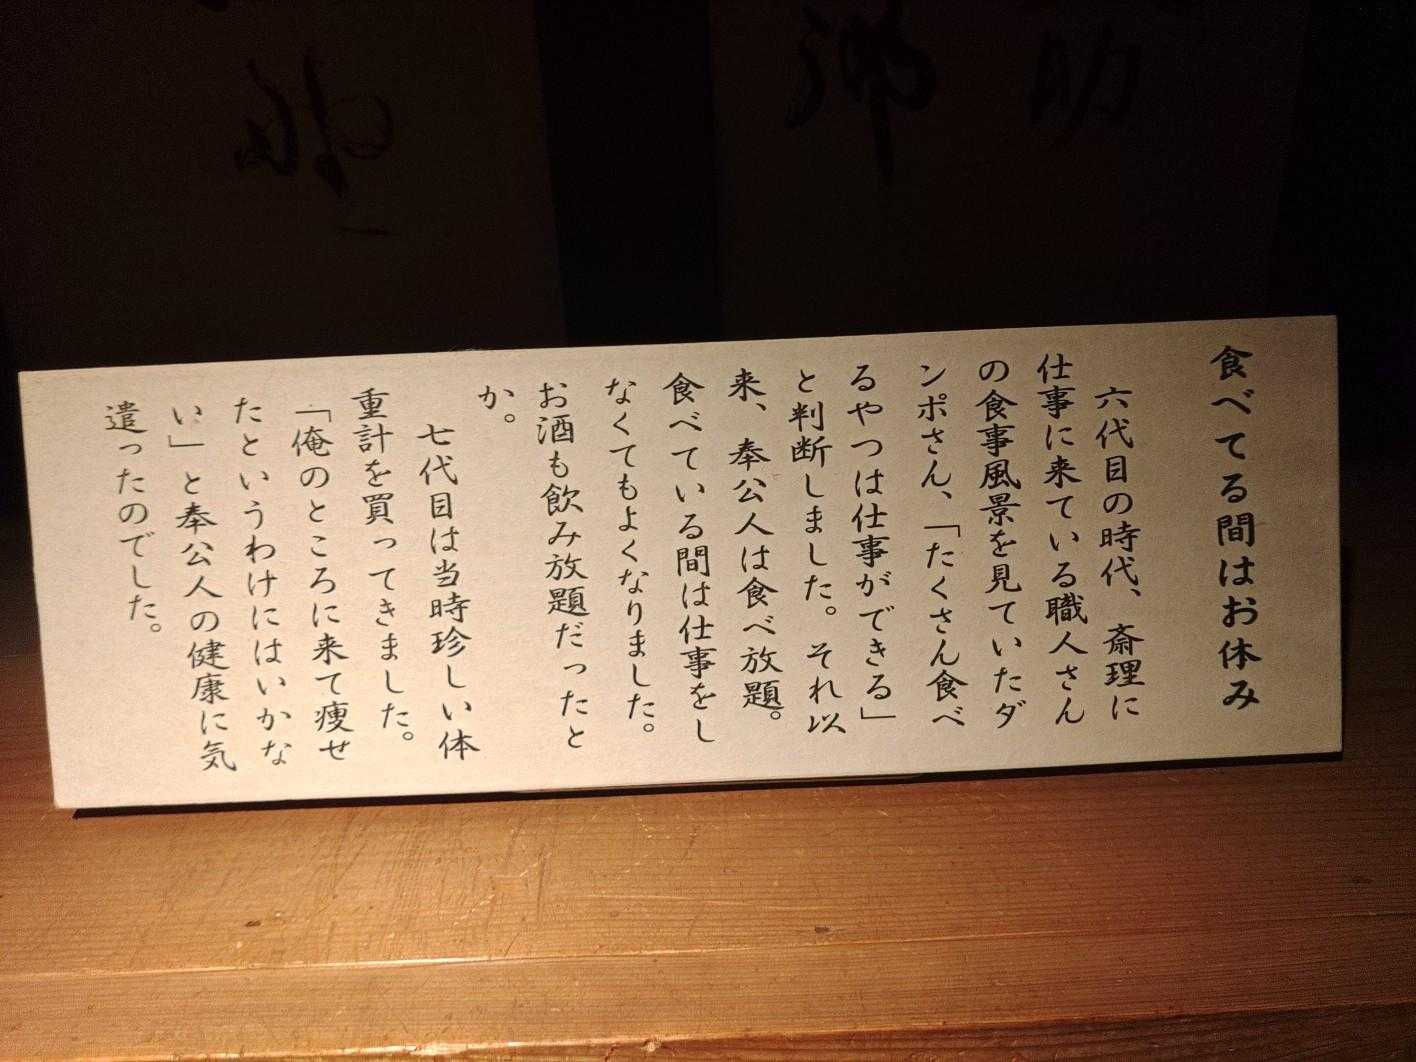 食べてる間はお休み
六代目の時代、斎理に
仕事に来ている職人さん
の食事風景を見ていたダ
ンポさん、「たくさん食べ
るやつは仕事ができる」
と判断しました。それ以
来、奉公人は食べ放題。
食べている間は仕事をし
なくてもよくなりました。
お酒も飲み放題だったと
か。
七代目は当時珍しい体
重計を買ってきました。
「俺のところに来て痩せ
たというわけにはいかな
い」と奉公人の健康に気
遣ったのでした。
助